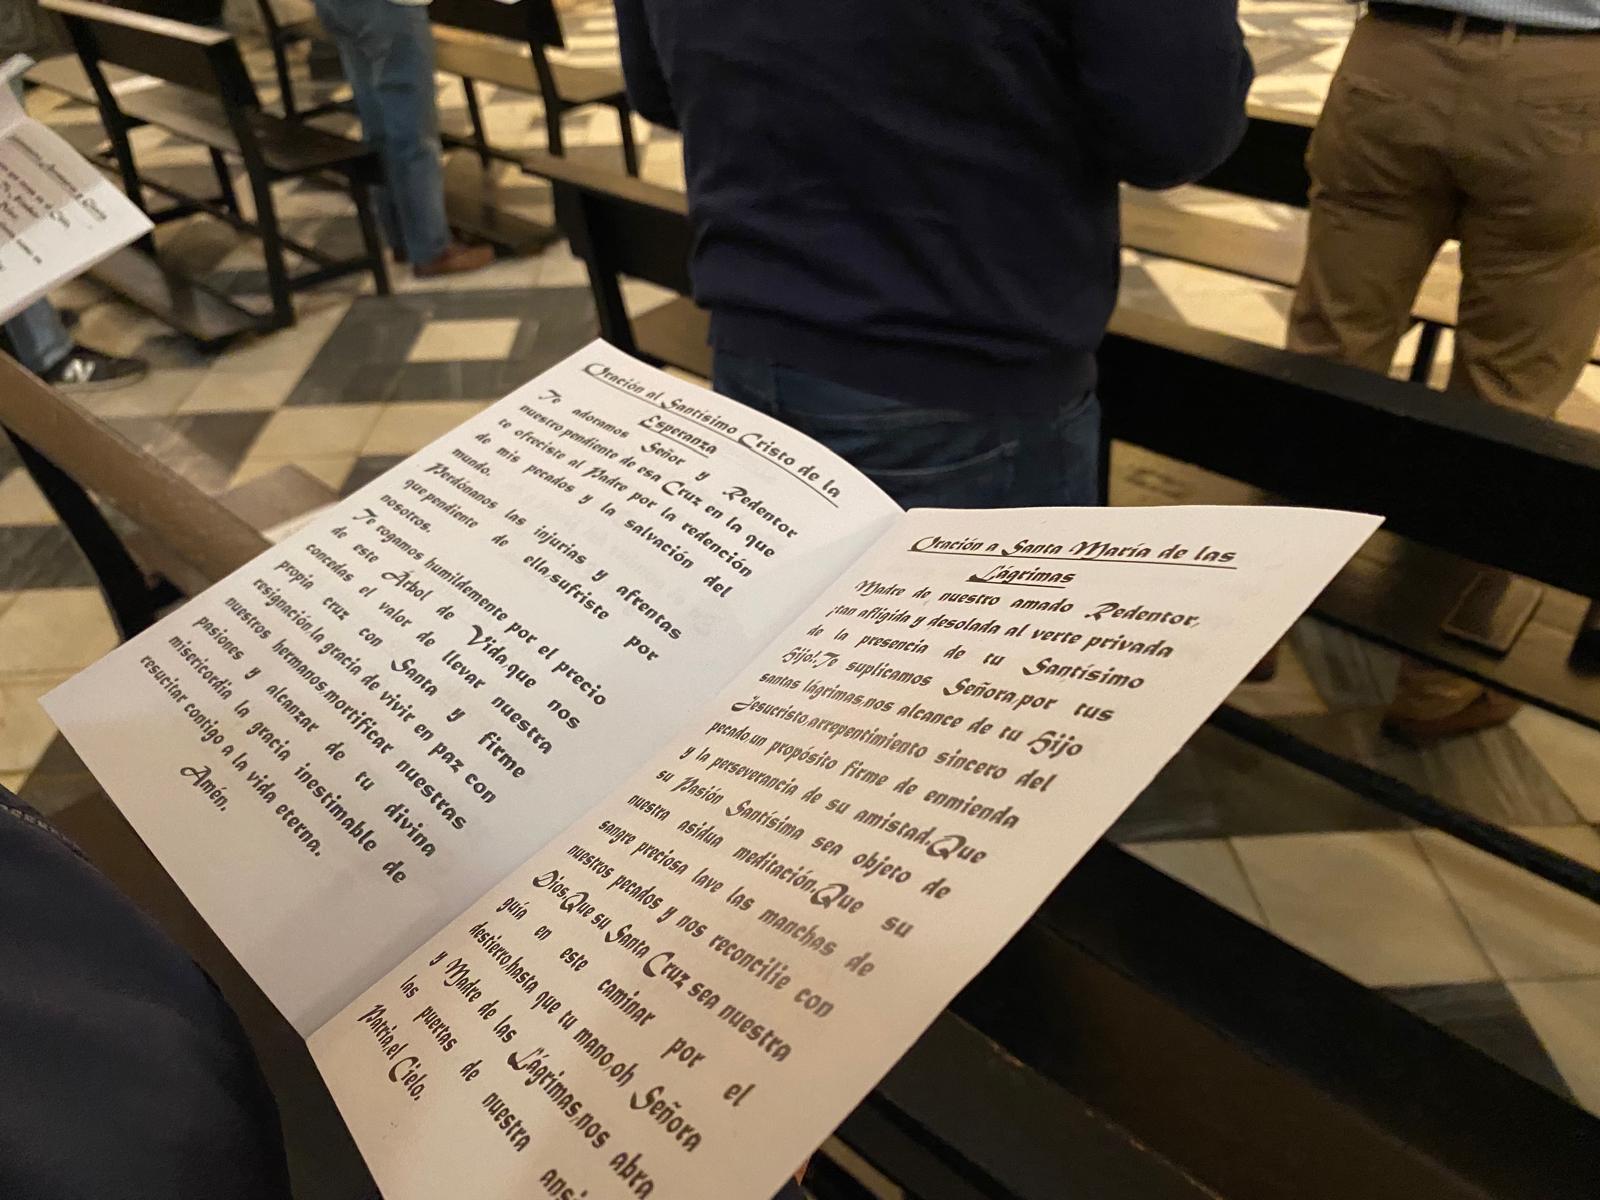 Oración al Santísimo Cristo de la
Esperanza
Te adoramos Señor y Redentor
nuestro,pendiente de esa Cruz en la que
te ofreciste al Padre por la redención
de mis pecados y la salvación del
mundo.
Perdónanos las injurias y afrentas
que,pendiente de ella,sufriste por
nosotros.
Te rogamos humildemente,por el precio
de este Árbol de Vida,que nos
concedas el valor de llevar nuestra
propia cruz con Santa y firme
resignación,la gracia de vivir en paz con
nuestros hermanos,mortificar nuestras
pasiones y alcanzar de tu divina
misericordia la gracia inestimable de
resucitar contigo a la vida eterna.
Amén.
Oración a Santa María de las
Lágrimas
Madre de nuestro amado Redentor,
¡tan afligida y desolada al verte privada
de la presencia de tu Santísimo
Hijo!.Te suplicamos Señora,por tus
santas lágrimas,nos alcance de tu Hijo
Jesucristo,arrepentimiento sincero del
pecado,un propósito firme de enmienda
y la perseverancia de su amistad.Que
su Pasión Santísima sea objeto de
nuestra asidua meditación.Que su
sangre preciosa lave las manchas de
nuestros pecados y nos reconcilie con
Dios.Que su Santa Cruz sea nuestra
guía en este caminar por el
destierro,hasta que tu mano,oh Señora
y Madre de las Lágrimas,nos abra
las puertas de nuestra
Patria,el Cielo.